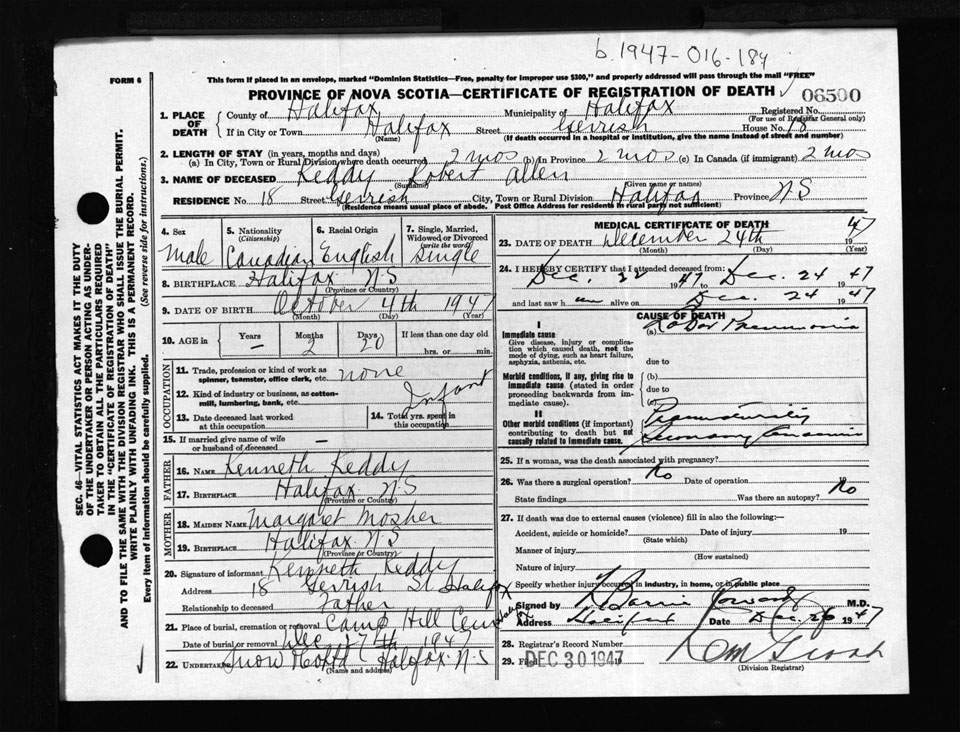 b. 1947-016-184
FORM 6
This form if placed in an envelope, marked "Dominion Statistics—Free, penalty for improper use $300," and properly addressed will pass through the mail "FREE"
PROVINCE OF NOVA SCOTIA—CERTIFICATE OF REGISTRATION OF DEATH
06500
1. PLACE OF DEATH
County of Halifax Municipality of Halifax Registered No.
(For use of Registrar General only)
If in City or Town Halifax Street Gerrish House No. 18
(Name) (If death occurred in a hospital or institution, give the name instead of street and number)
2. LENGTH OF STAY (in years, months and days)
(a) In City, Town or Rural Division where death occurred 2 mos (b) In Province 2 mos (c) In Canada (if immigrant) 2 mos
3. NAME OF DECEASED Keddy Robert Allen
(Surname) (Given name or names)
RESIDENCE No. 18 Street Gerrish City, Town or Rural Division Halifax Province N.S
(Residence means usual place of abode. Post Office Address for residents in rural party not sufficient)
4. Sex Male
5. Nationality (Citizenship) Canadian
6. Racial Origin English
7. Single, Married, Widowed or Divorced (write the word) Single
8. BIRTHPLACE Halifax N.S
(Province or Country)
9. DATE OF BIRTH October 4th 1947
(Month) (Day) (Year)
10. AGE in Years — Months 2 Days 20 If less than one day old
hrs. or min.
OCCUPATION
11. Trade, profession or kind of work as spinner, teamster, office clerk, etc. none
12. Kind of industry or business, as cotton-mill, lumbering, bank, etc. Infant
13. Date deceased last worked at this occupation
14. Total yrs. spent in this occupation
15. If married give name of wife or husband of deceased —
FATHER
16. NAME Kenneth Keddy
17. BIRTHPLACE Halifax N.S
(Province or Country)
MOTHER
18. MAIDEN NAME Margaret Mosher
19. BIRTHPLACE Halifax N.S
(Province or Country)
20. Signature of informant Kenneth Keddy
Address 18 Gerrish St Halifax
Relationship to deceased Father
21. Place of burial, cremation or removal Camp Hill Cem Halifax
Date of burial or removal Dec 27th 1947
22. UNDERTAKER Snow Halifax N.S
(Name and address)
MEDICAL CERTIFICATE OF DEATH
23. DATE OF DEATH December 24th 1947
(Month) (Day) (Year)
24. I HEREBY CERTIFY that I attended deceased from:
Dec. 22 1947 to Dec. 24 1947
and last saw h im alive on Dec. 24 1947
CAUSE OF DEATH
I
Immediate cause
Give disease, injury or complication which caused death, not the mode of dying, such as heart failure, asphyxia, asthenia, etc.
(a) Lobar Pneumonia
due to
Morbid conditions, if any, giving rise to immediate cause (stated in order proceeding backwards from immediate cause).
(b)
due to
(c)
II
Other morbid conditions (if important) contributing to death but not causally related to immediate cause.
Prematurity
Secondary Anaemia
25. If a woman, was the death associated with pregnancy?
26. Was there a surgical operation? No Date of operation
State findings Was there an autopsy? No
27. If death was due to external causes (violence) fill in also the following:—
Accident, suicide or homicide? Date of injury 19
(State which)
Manner of injury
(How sustained)
Nature of injury
Specify whether injury occurred in industry, in home, or in public place
Signed by M.D.
Address Halifax Date Dec. 26 1947
28. Registrar's Record Number
29. Filed DEC 30 1947
(Division Registrar)
SEC. 46—VITAL STATISTICS ACT MAKES IT THE DUTY
OF THE UNDERTAKER OR PERSON ACTING AS UNDER-
TAKER TO OBTAIN ALL THE PARTICULARS REQUIRED
IN THE "CERTIFICATE OF REGISTRATION OF DEATH"
AND TO FILE THE SAME WITH THE DIVISION REGISTRAR WHO SHALL ISSUE THE BURIAL PERMIT.
WRITE PLAINLY WITH UNFADING INK. THIS IS A PERMANENT RECORD.
Every item of information should be carefully supplied. (See reverse side for instructions.)